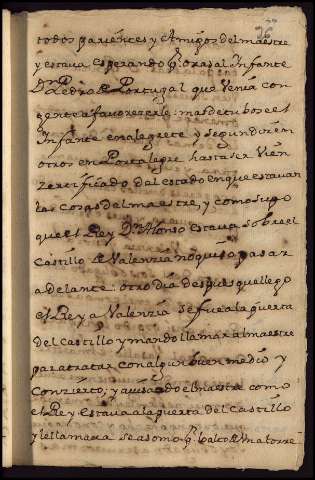 36
todos parientes y Amigos del maestre
y estava esperando p.r oras al Infante
Dn Pedro de Portugal que Venia con
gente a favorezerle: mas detubose el
Infante en alegrete y segun dizen
otros en Portalegre hasta ser Vien
Zertificado del estado en que estavan
las cosas del maestre, y como supo
que el Rey Dn Alonso Estava sobre el
Castillo de Valenzia no quiso pasar
adelante: otro dia despues que llego
el Rey a Valenzia se fue a la puerta
del Castillo y mando llamar al maestre
para tratar con algun buen medio y
Conzierto, y avisando el maestre como
el Rey Estava a la puerta del Castillo
y le llamava se asomo p.r lo alto de Una torre